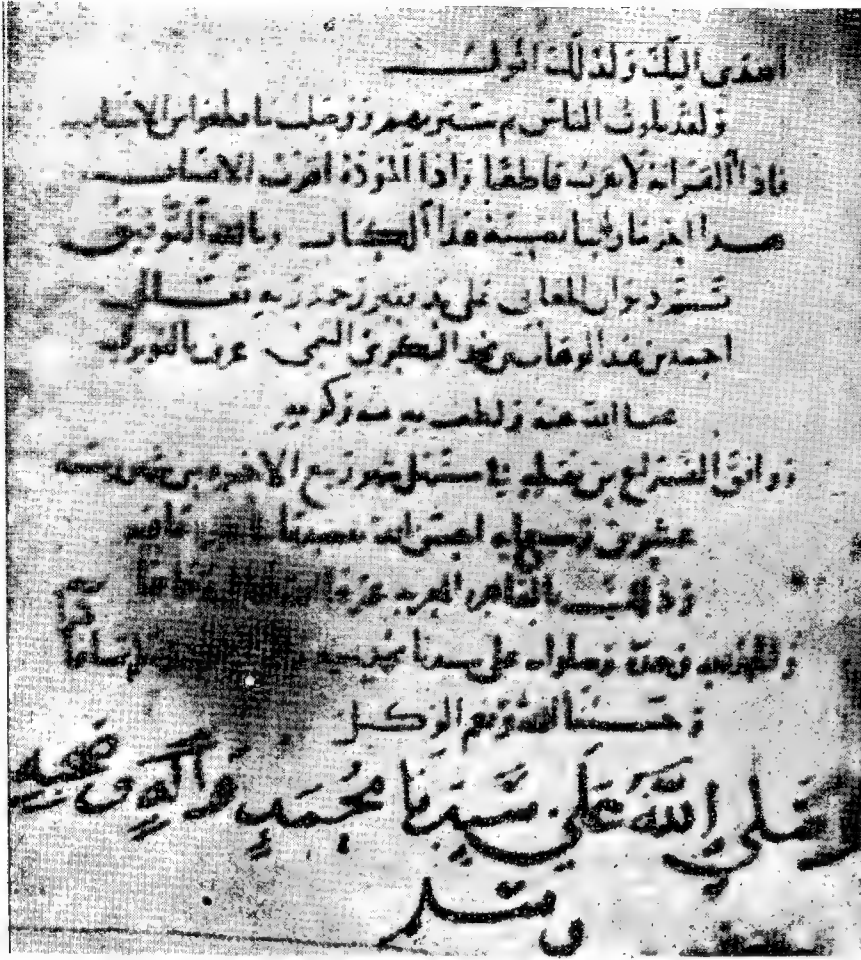 اليك ولذلك
ولقد بلوت الناس ثم سبرتهم ووصلت ما قطعوا من الاسباب
فاذا القرابة لا تقرب قاطعا واذا المودة اقرب الانساب
هذا اخر ما رأينا تضمينه هذا الكتاب وبالله التوفيق
تم ديوان المعاني على يد فقير رحمة ربه تعالى
احمد بن عبد الوهاب بن محمد البكري التيمي عرف بالنويري
عفا الله عنه ولطف به بمنه وكرمه
ووافق الفراغ من تعليقه في مستهل شهر ربيع الاخر من شهور سنة
عشرين وسبعماية احسن الله تقضيها
وذلك بالقاهرة المعزية
والحمد لله وحده وصلواته على سيدنا محمد
وحسبنا الله ونعم الوكيل
صلى الله على سيدنا محمد واله وصحبه
وسلم